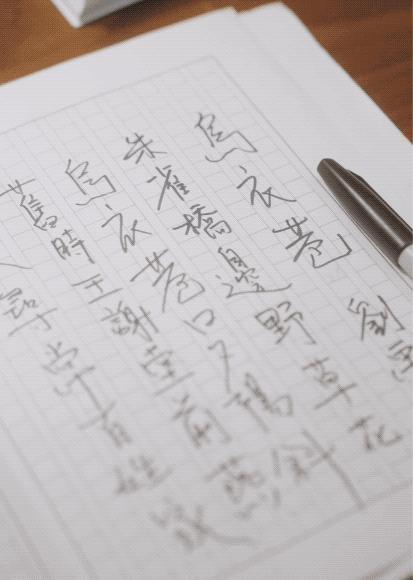 烏衣巷」 劉
朱雀橋邊野草花
烏衣巷口夕陽斜
舊時王謝堂前燕
尋常百姓家